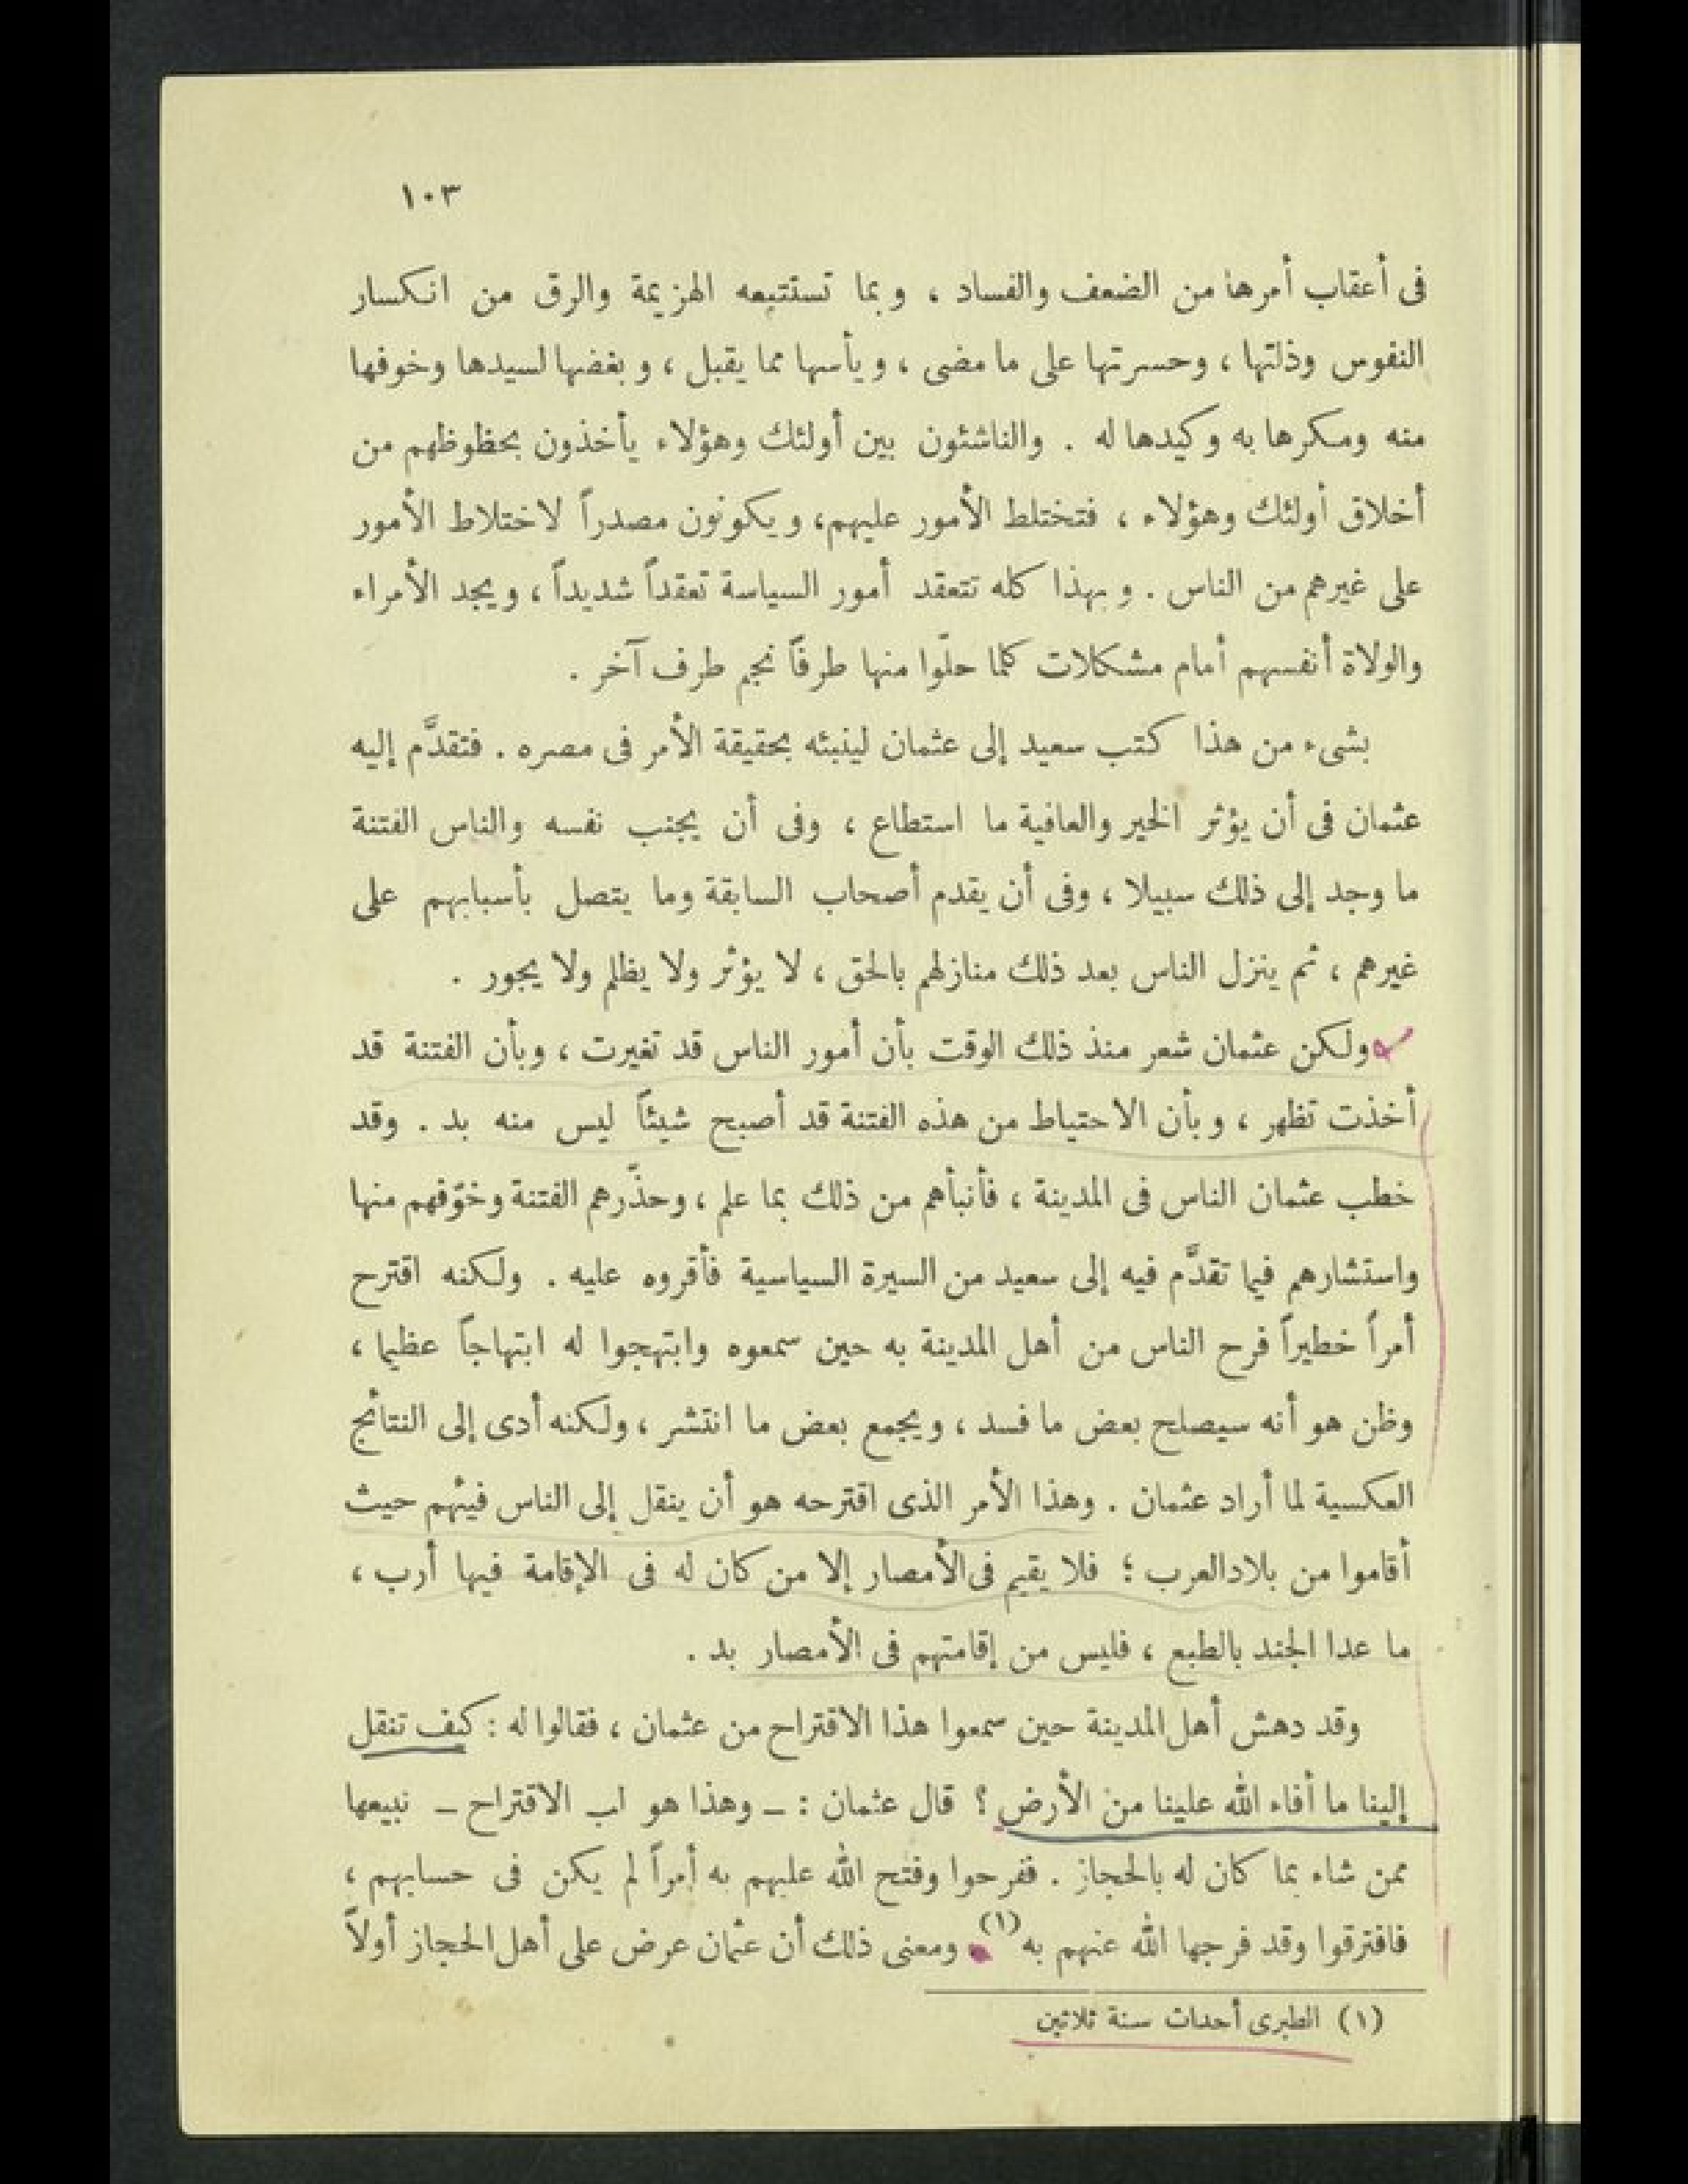 ١٠٣
فى أعقاب أمرها من الضعف والفساد ، وبما تستتبعه الهزيمة والرق من انكسار
النفوس وذلتها ، وحسرتها على ما مضى ، ويأسها مما يقبل ، وبغضها لسيدها وخوفها
منه ومكرها به وكيدها له . والناشئون بين أولئك وهؤلاء يأخذون بحظوظهم من
أخلاق أولئك وهؤلاء ، فتختلط الأمور عليهم، ويكونون مصدراً لاختلاط الأمور
على غيرهم من الناس . وبهذا كله تتعقد أمور السياسة تعقداً شديداً ، ويجد الأمراء
والولاة أنفسهم أمام مشكلات كلما حلّوا منها طرفاً نجم طرف آخر .
بشىء من هذا كتب سعيد إلى عثمان لينبئه بحقيقة الأمر فى مصره . فتقدَّم إليه
عثمان فى أن يؤثر الخير والعافية ما استطاع ، وفى أن يجنب نفسه والناس الفتنة
ما وجد إلى ذلك سبيلا ، وفى أن يقدم أصحاب السابقة وما يتصل بأسبابهم على
غيرهم ، ثم ينزل الناس بعد ذلك منازلهم بالحق ، لا يؤثر ولا يظلم ولا يجور .
ولكن عثمان شعر منذ ذلك الوقت بأن أمور الناس قد تغيرت ، وبأن الفتنة قد
أخذت تظهر ، وبأن الاحتياط من هذه الفتنة قد أصبح شيئاً ليس منه بد . وقد
خطب عثمان الناس فى المدينة ، فأنبأهم من ذلك بما علم ، وحذّرهم الفتنة وخوّفهم منها
واستشارهم فيما تقدَّم فيه إلى سعيد من السيرة السياسية فأقروه عليه . ولكنه اقترح
أمراً خطيراً فرح الناس من أهل المدينة به حين سمعوه وابتهجوا له ابتهاجاً عظيما ،
وظن هو أنه سيصلح بعض ما فسد ، ويجمع بعض ما انتشر ، ولكنه أدى إلى النتائج
العكسية لما أراد عثمان . وهذا الأمر الذى اقترحه هو أن ينقل إلى الناس فيئهم حيث
أقاموا من بلاد العرب ؛ فلا يقيم فى الأمصار إلا من كان له فى الإقامة فيها أرب ،
ما عدا الجند بالطبع ، فليس من إقامتهم فى الأمصار بد .
وقد دهش أهل المدينة حين سمعوا هذا الاقتراح من عثمان ، فقالوا له : كيف تنقل
إلينا ما أفاء الله علينا من الأرض ؟ قال عثمان : – وهذا هو لب الاقتراح – نبيعها
ممن شاء بما كان له بالحجاز . ففرحوا وفتح الله عليهم به أمراً لم يكن فى حسابهم ،
فافترقوا وقد فرجها الله عنهم به (١) . ومعنى ذلك أن عثمان عرض على أهل الحجاز أولاً
(١) الطبرى أحداث سنة ثلاثين